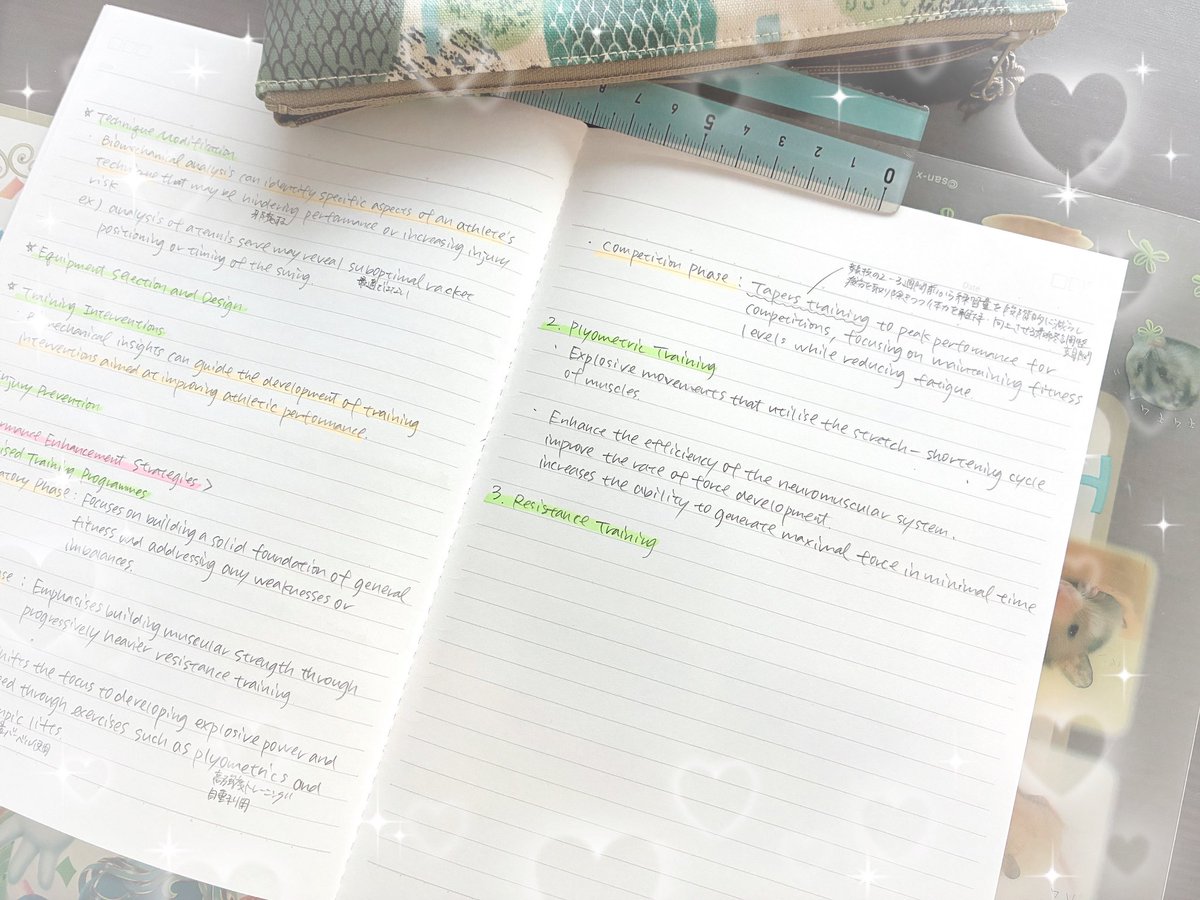 * Technique Modification
· Biomechanical analysis can identify specific aspects of an athlete's
technique that may be hindering performance or increasing injury
risk
ex) analysis of a tennis serve may reveal suboptimal racket
positioning or timing of the swing.
* Equipment Selection and Design
* Training Interventions
mechanical insights can guide the development of training
interventions aimed at improving athletic performance.
njury Prevention
rmance Enhancement Strategies >
ised Training Programmes
ratory Phase : Focuses on building a solid foundation of general
fitness and addressing any weaknesses or
imbalances.
ase : Emphasises building muscular strength through
progressively heavier resistance training
hifts the focus to developing explosive power and
eed through exercises such as plyometrics and
mpic lifts
高強度トレーニング
自重利用
8 7 6 5 4 3 2 1 0
©san-x
Date
· Competition Phase : Tapers training to peak performance for
competitions, focusing on maintaining fitness
levels while reducing fatigue
2. Plyometric Training
· Explosive movements that utilise the stretch-shortening cycle
of muscles.
· Enhance the efficiency of the neuromuscular system.
improve the rate of force development.
increases the ability to generate maximal force in minimal time
3. Resistance Training